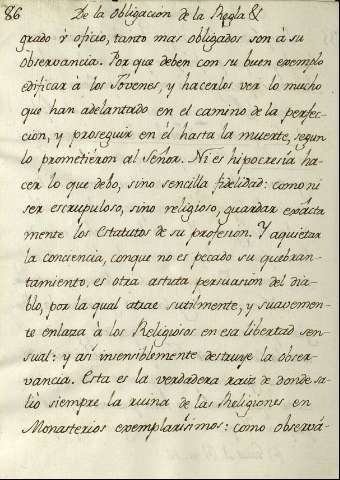 86 De la Obligacion de la Regla &
grado ỳ oficio, tanto mas obligados son à su
observancia. Por que deben con su buen exemplo
edificar à los Jovenes, y hacerlos ver lo mucho
que han adelantado en el camino de la perfec-
cion, y proseguir en èl hasta la muerte, segun
lo prometieron al Señor. Ni es hipocresia ha-
cer lo que debo, sino sencilla fidelidad: como ni
ser escrupuloso, sino religioso, guardar exâcta
mente los Estatutos de su profesion. Y aquietar
la conciencia, conque no es pecado su quebran-
tamiento, es otra astuta persuasion del dia-
blo, por la qual atrae sutilmente, y suavemen-
te enlaza à los Religiosos en esa libertad sen-
sual: y asi insensiblemente destruye la obser-
vancia. Esta es la verdadera raiz de donde sa-
liò siempre la ruina de las Religiones en
Monasterios exemplarisimos: como observá-